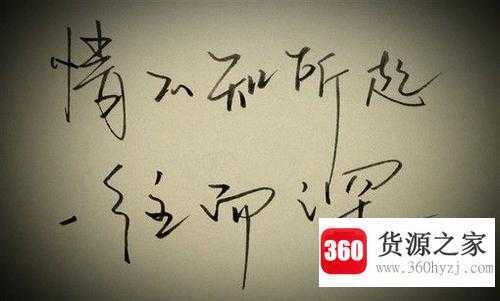 情不知所起
一往而深
360 货源之家
www.360hyzj.com